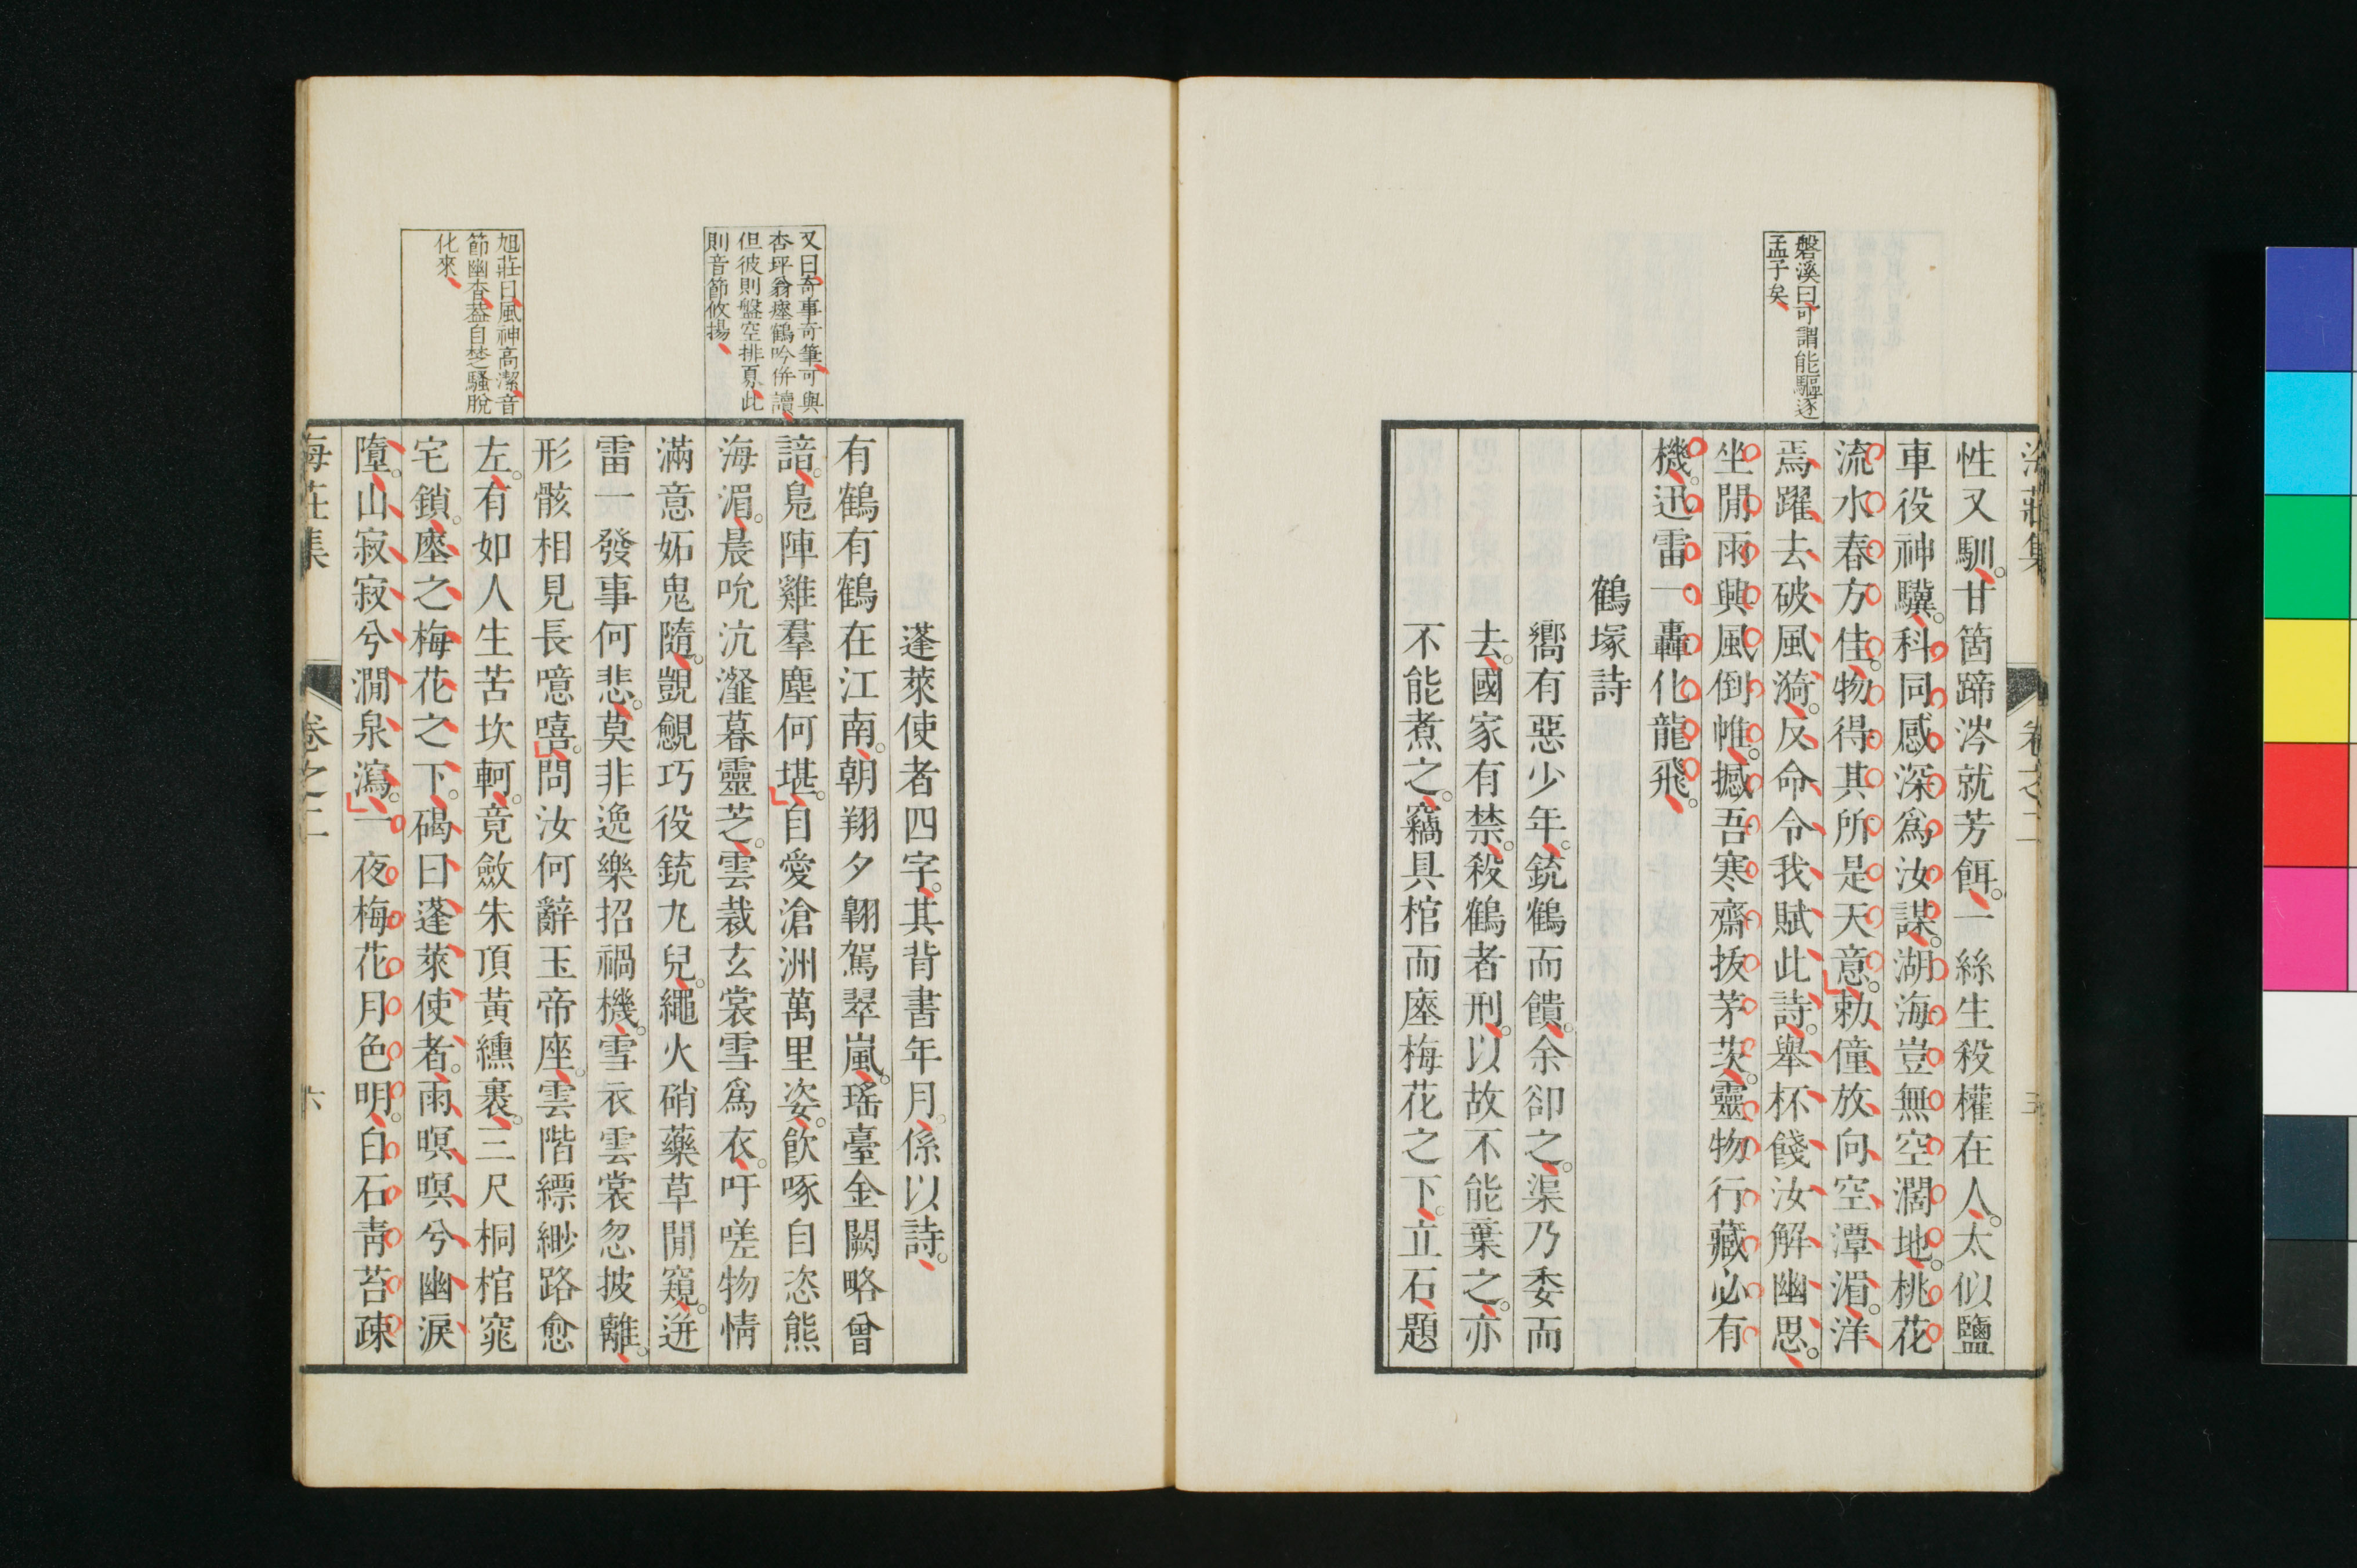 磐溪曰可謂能驅逐
孟子矣
性又馴。甘箇蹄涔就芳餌。一絲生殺權在人。太似鹽
車役神驥。科同感深爲汝謀。湖海豈無空濶地。桃花
流水春方佳。物得其所是天意。勅僮放向空潭湄。洋
焉躍去破風漪。反命令我賦此詩。舉杯餞汝解幽思。
坐閒雨興風倒帷。撼吾寒齋拔茅茨。靈物行藏必有
機。迅雷一轟化龍飛。
鶴塚詩
嚮有惡少年。銃鶴而饋。余卻之。渠乃委而
去。國家有禁。殺鶴者刑。以故不能棄之。亦
不能煮之。竊具棺而瘞梅花之下。立石題
又曰奇事奇筆可與
杏坪翁瘞鶴吟併讀
但彼則盤空排奡此
則音節攸揚
旭莊曰風神高潔音
節幽杳葢自楚騷脫
化來
蓬萊使者四字。其背書年月。係以詩。
有鶴有鶴在江南。朝翔夕翺駕翠嵐。瑤臺金闕略曾
諳。鳧陣雞羣塵何堪。自愛滄洲萬里姿。飮啄自恣熊
海湄。晨吮沆瀣暮靈芝。雲裁玄裳雪爲衣。吁嗟物情
滿意妬鬼隨。覬覦巧役銃丸兒。繩火硝藥草閒窺。迸
雷一發事何悲。莫非逸樂招禍機。雪衣雲裳忽披離。
形骸相見長噫嘻。問汝何辭玉帝座。雲階縹緲路愈
左。有如人生苦坎軻。竟斂朱頂黃纁裹。三尺桐棺窕
宅鎖。瘞之梅花之下。碣曰蓬萊使者。雨暝暝兮幽淚
墮。山寂寂兮澗泉瀉。一夜梅花月色明。白石靑苔疎
海莊集　卷之二　六